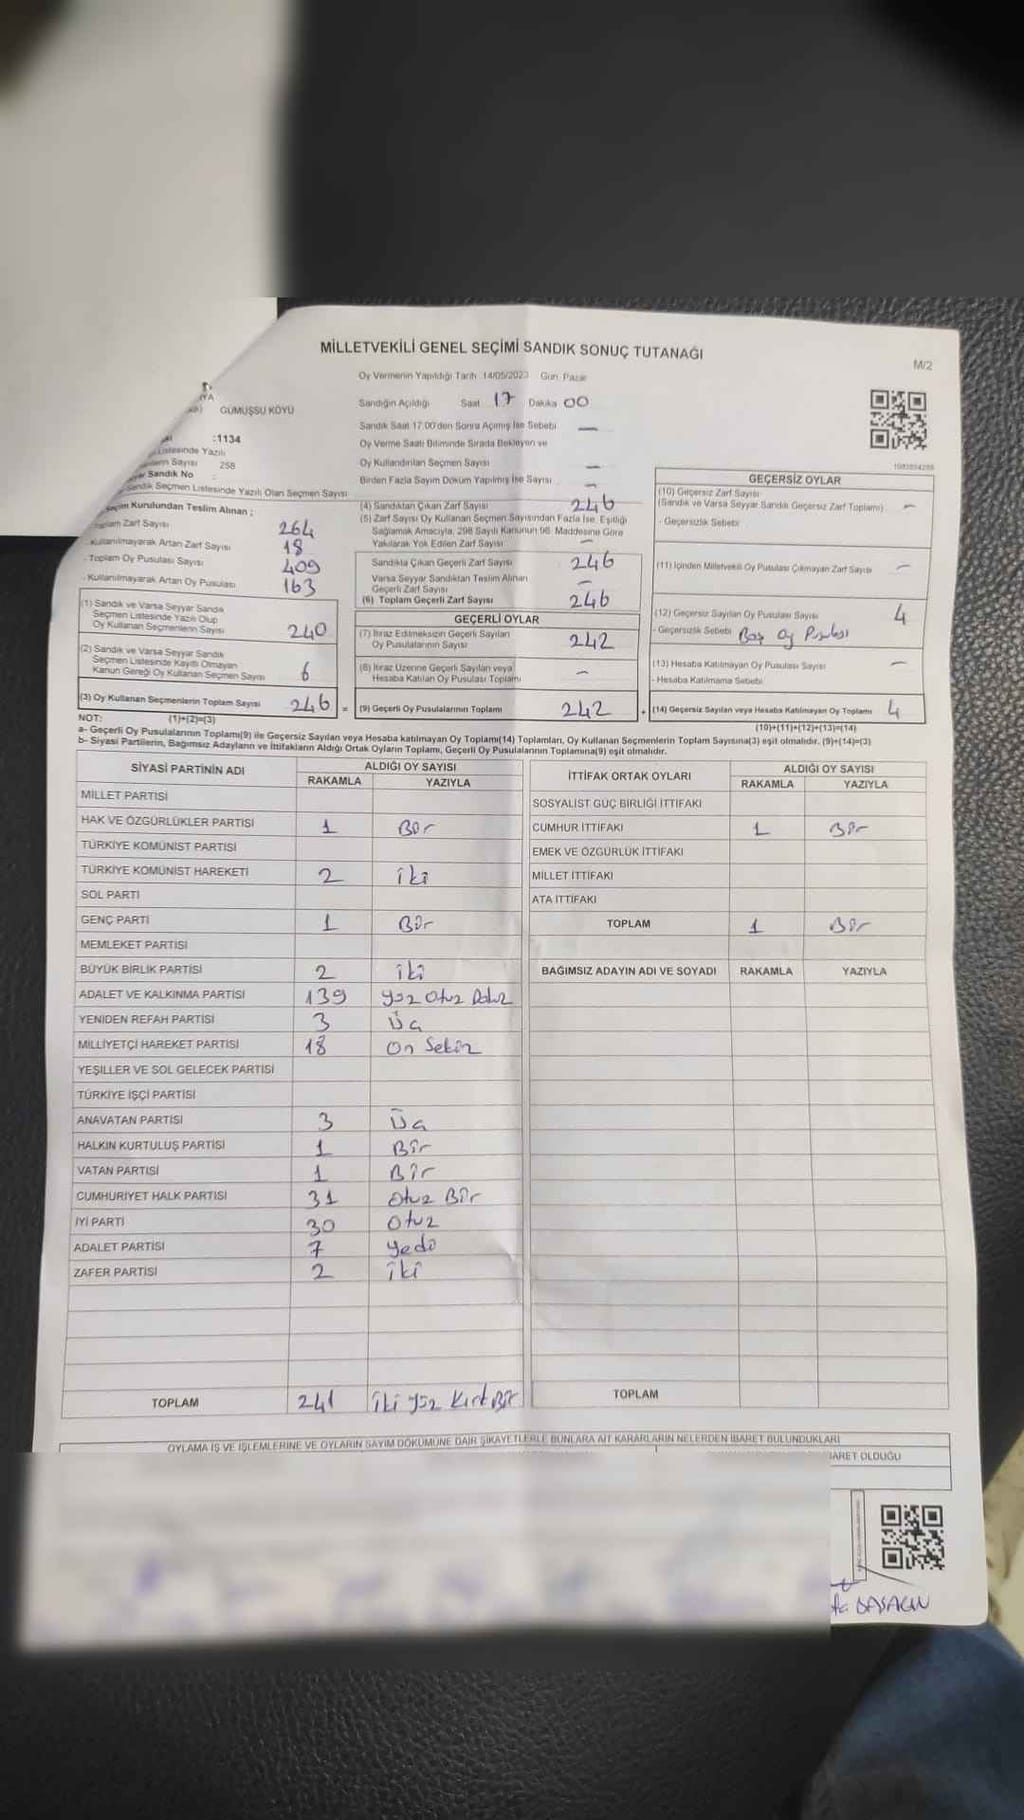 MİLLETVEKİLİ GENEL SEÇİMİ SANDIK SONUÇ TUTANAĞI
M/2
Oy Vermenin Yapıldığı Tarih 14/05/2023 Gün Pazar
GÜMÜŞSU KÖYÜ
Sandığın Açıldığı Saat 17 Dakika 00
Sandık Saat 17:00'den Sonra Açılmış İse Sebebi —
:1134
Oy Verme Saati Bitiminde Sırada Bekleyen ve
Oy Kullandırılan Seçmen Sayısı —
Listesinde Yazılı
Sayısı 258
Birden Fazla Sayım Döküm Yapılmış İse Sayısı —
Sandık No
Sandık Seçmen Listesinde Yazılı Olan Seçmen Sayısı
Seçim Kurulundan Teslim Alınan ;
Toplam Zarf Sayısı 264
Kullanılmayarak Artan Zarf Sayısı 18
- Toplam Oy Pusulası Sayısı 409
- Kullanılmayarak Artan Oy Pusulası 163
(1) Sandık ve Varsa Seyyar Sandık
Seçmen Listesinde Yazılı Olup
Oy Kullanan Seçmenlerin Sayısı 240
(2) Sandık ve Varsa Seyyar Sandık
Seçmen Listesinde Kayıtlı Olmayan
Kanun Gereği Oy Kullanan Seçmen Sayısı 6
(3) Oy Kullanan Seçmenlerin Toplam Sayısı 246 =
(4) Sandıktan Çıkan Zarf Sayısı 246
(5) Zarf Sayısı Oy Kullanan Seçmen Sayısından Fazla İse, Eşitliği
Sağlamak Amacıyla, 298 Sayılı Kanunun 98. Maddesine Göre
Yakılarak Yok Edilen Zarf Sayısı —
Sandıkta Çıkan Geçerli Zarf Sayısı 246
Varsa Seyyar Sandıktan Teslim Alınan
Geçerli Zarf Sayısı —
(6) Toplam Geçerli Zarf Sayısı 246
GEÇERLİ OYLAR
(7) İtiraz Edilmeksizin Geçerli Sayılan
Oy Pusulalarının Sayısı 242
(8) İtiraz Üzerine Geçerli Sayılan veya
Hesaba Katılan Oy Pusulası Toplamı —
(9) Geçerli Oy Pusulalarının Toplamı 242 +
GEÇERSİZ OYLAR
(10) Geçersiz Zarf Sayısı
(Sandık ve Varsa Seyyar Sandık Geçersiz Zarf Toplamı) —
- Geçersizlik Sebebi
(11) İçinden Milletvekili Oy Pusulası Çıkmayan Zarf Sayısı —
(12) Geçersiz Sayılan Oy Pusulası Sayısı 4
- Geçersizlik Sebebi Boş Oy Pusulası
(13) Hesaba Katılmayan Oy Pusulası Sayısı —
- Hesaba Katılmama Sebebi
(14) Geçersiz Sayılan veya Hesaba Katılmayan Oy Toplamı 4
NOT: (1)+(2)=(3) (10)+(11)+(12)+(13)=(14)
a- Geçerli Oy Pusulalarının Toplamı(9) ile Geçersiz Sayılan veya Hesaba katılmayan Oy Toplamı(14) Toplamları, Oy Kullanan Seçmenlerin Toplam Sayısına(3) eşit olmalıdır. (9)+(14)=(3)
b- Siyasi Partilerin, Bağımsız Adayların ve İttifakların Aldığı Ortak Oyların Toplamı, Geçerli Oy Pusulalarının Toplamına(9) eşit olmalıdır.
SİYASİ PARTİNİN ADI ALDIĞI OY SAYISI
RAKAMLA YAZIYLA
MİLLET PARTİSİ
HAK VE ÖZGÜRLÜKLER PARTİSİ 1 Bir
TÜRKİYE KOMÜNİST PARTİSİ
TÜRKİYE KOMÜNİST HAREKETİ 2 iki
SOL PARTİ
GENÇ PARTİ 1 Bir
MEMLEKET PARTİSİ
BÜYÜK BİRLİK PARTİSİ 2 iki
ADALET VE KALKINMA PARTİSİ 139 yüz Otuz Dokuz
YENİDEN REFAH PARTİSİ 3 Üç
MİLLİYETÇİ HAREKET PARTİSİ 18 on Sekiz
YEŞİLLER VE SOL GELECEK PARTİSİ
TÜRKİYE İŞÇİ PARTİSİ
ANAVATAN PARTİSİ 3 Üç
HALKIN KURTULUŞ PARTİSİ 1 Bir
VATAN PARTİSİ 1 Bir
CUMHURİYET HALK PARTİSİ 31 Otuz Bir
İYİ PARTİ 30 Otuz
ADALET PARTİSİ 7 yedi
ZAFER PARTİSİ 2 iki
TOPLAM 241 iki yüz Kırk Bir
İTTİFAK ORTAK OYLARI ALDIĞI OY SAYISI
RAKAMLA YAZIYLA
SOSYALİST GÜÇ BİRLİĞİ İTTİFAKI
CUMHUR İTTİFAKI 1 Bir
EMEK VE ÖZGÜRLÜK İTTİFAKI
MİLLET İTTİFAKI
ATA İTTİFAKI
TOPLAM 1 Bir
BAĞIMSIZ ADAYIN ADI VE SOYADI RAKAMLA YAZIYLA
TOPLAM
OYLAMA İŞ VE İŞLEMLERİNE VE OYLARIN SAYIM DÖKÜMÜNE DAİR ŞİKAYETLERLE BUNLARA AİT KARARLARIN NELERDEN İBARET BULUNDUKLARI
İBARET OLDUĞU